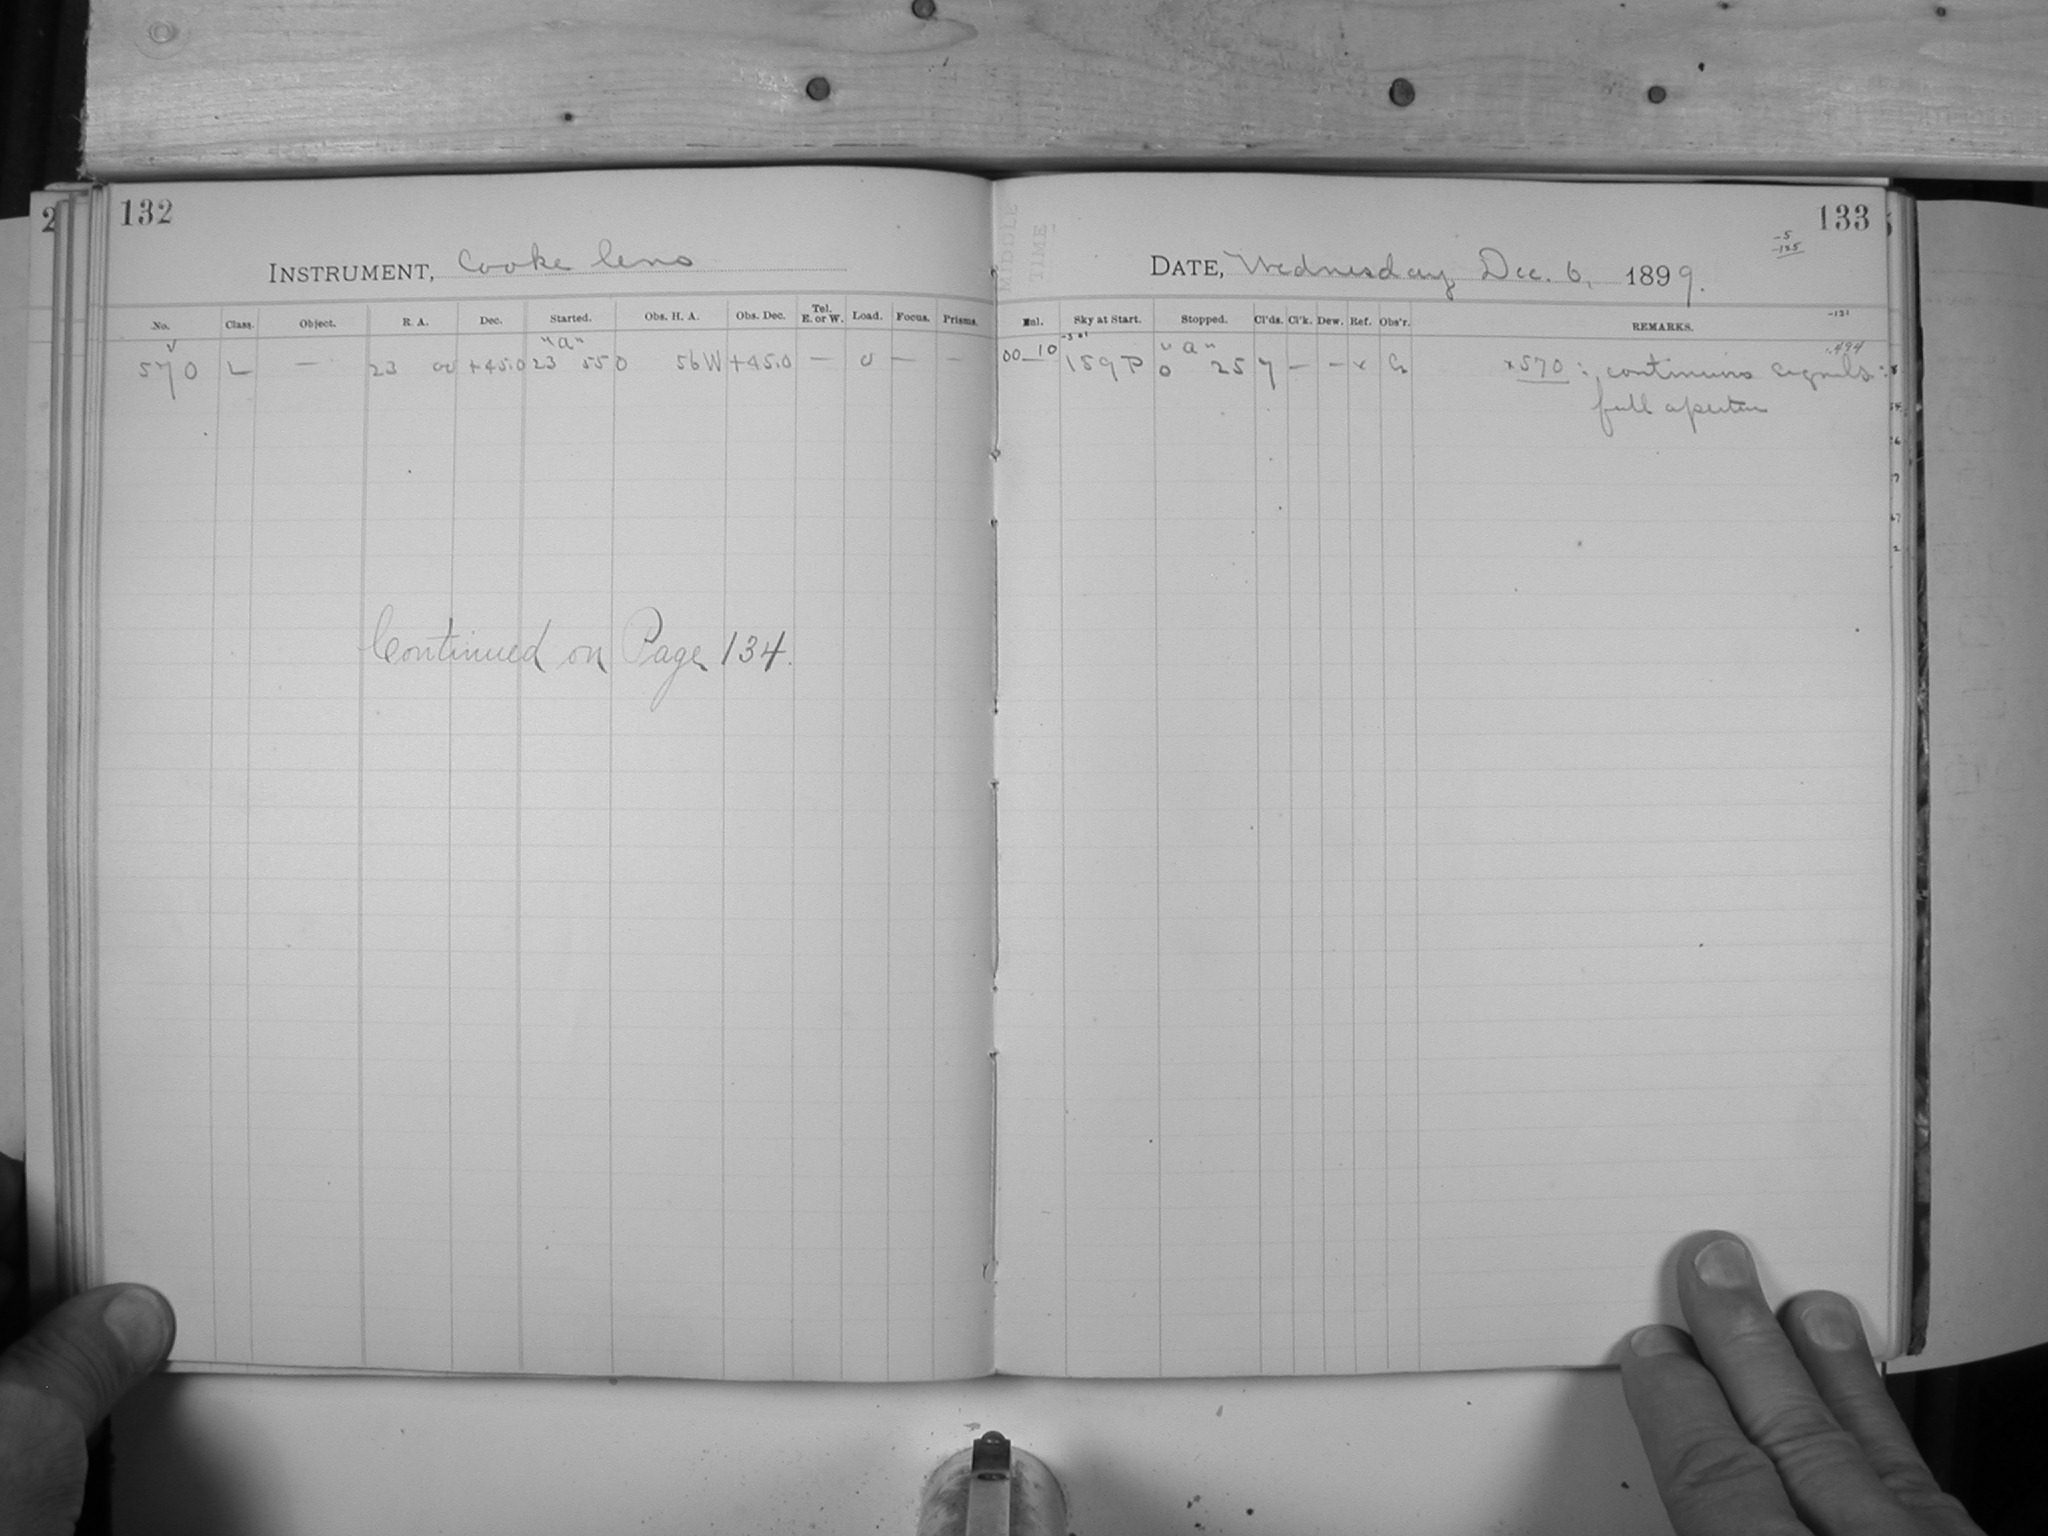 132
INSTRUMENT, Cooke lens
No. Class. Object. R. A. Dec. Started. Obs. H. A. Obs. Dec. Tel. E. or W. Load. Focus. Prisms.
"a"
570 L — 23 00 +45.0 23 55 0 56 W +45.0 — 0 — —
Continued on Page 134.
MIDDLE
TIME
133
-5
-125
DATE, Wednesday Dec. 6, 1899.
Sky at Start. Stopped. Cl'ds. Cl'k. Dew. Ref. Obs'r. REMARKS.
-131
"a"
.494
00 10 159 P 0 25 7 — — x x570 : continuing signals :
full aperture